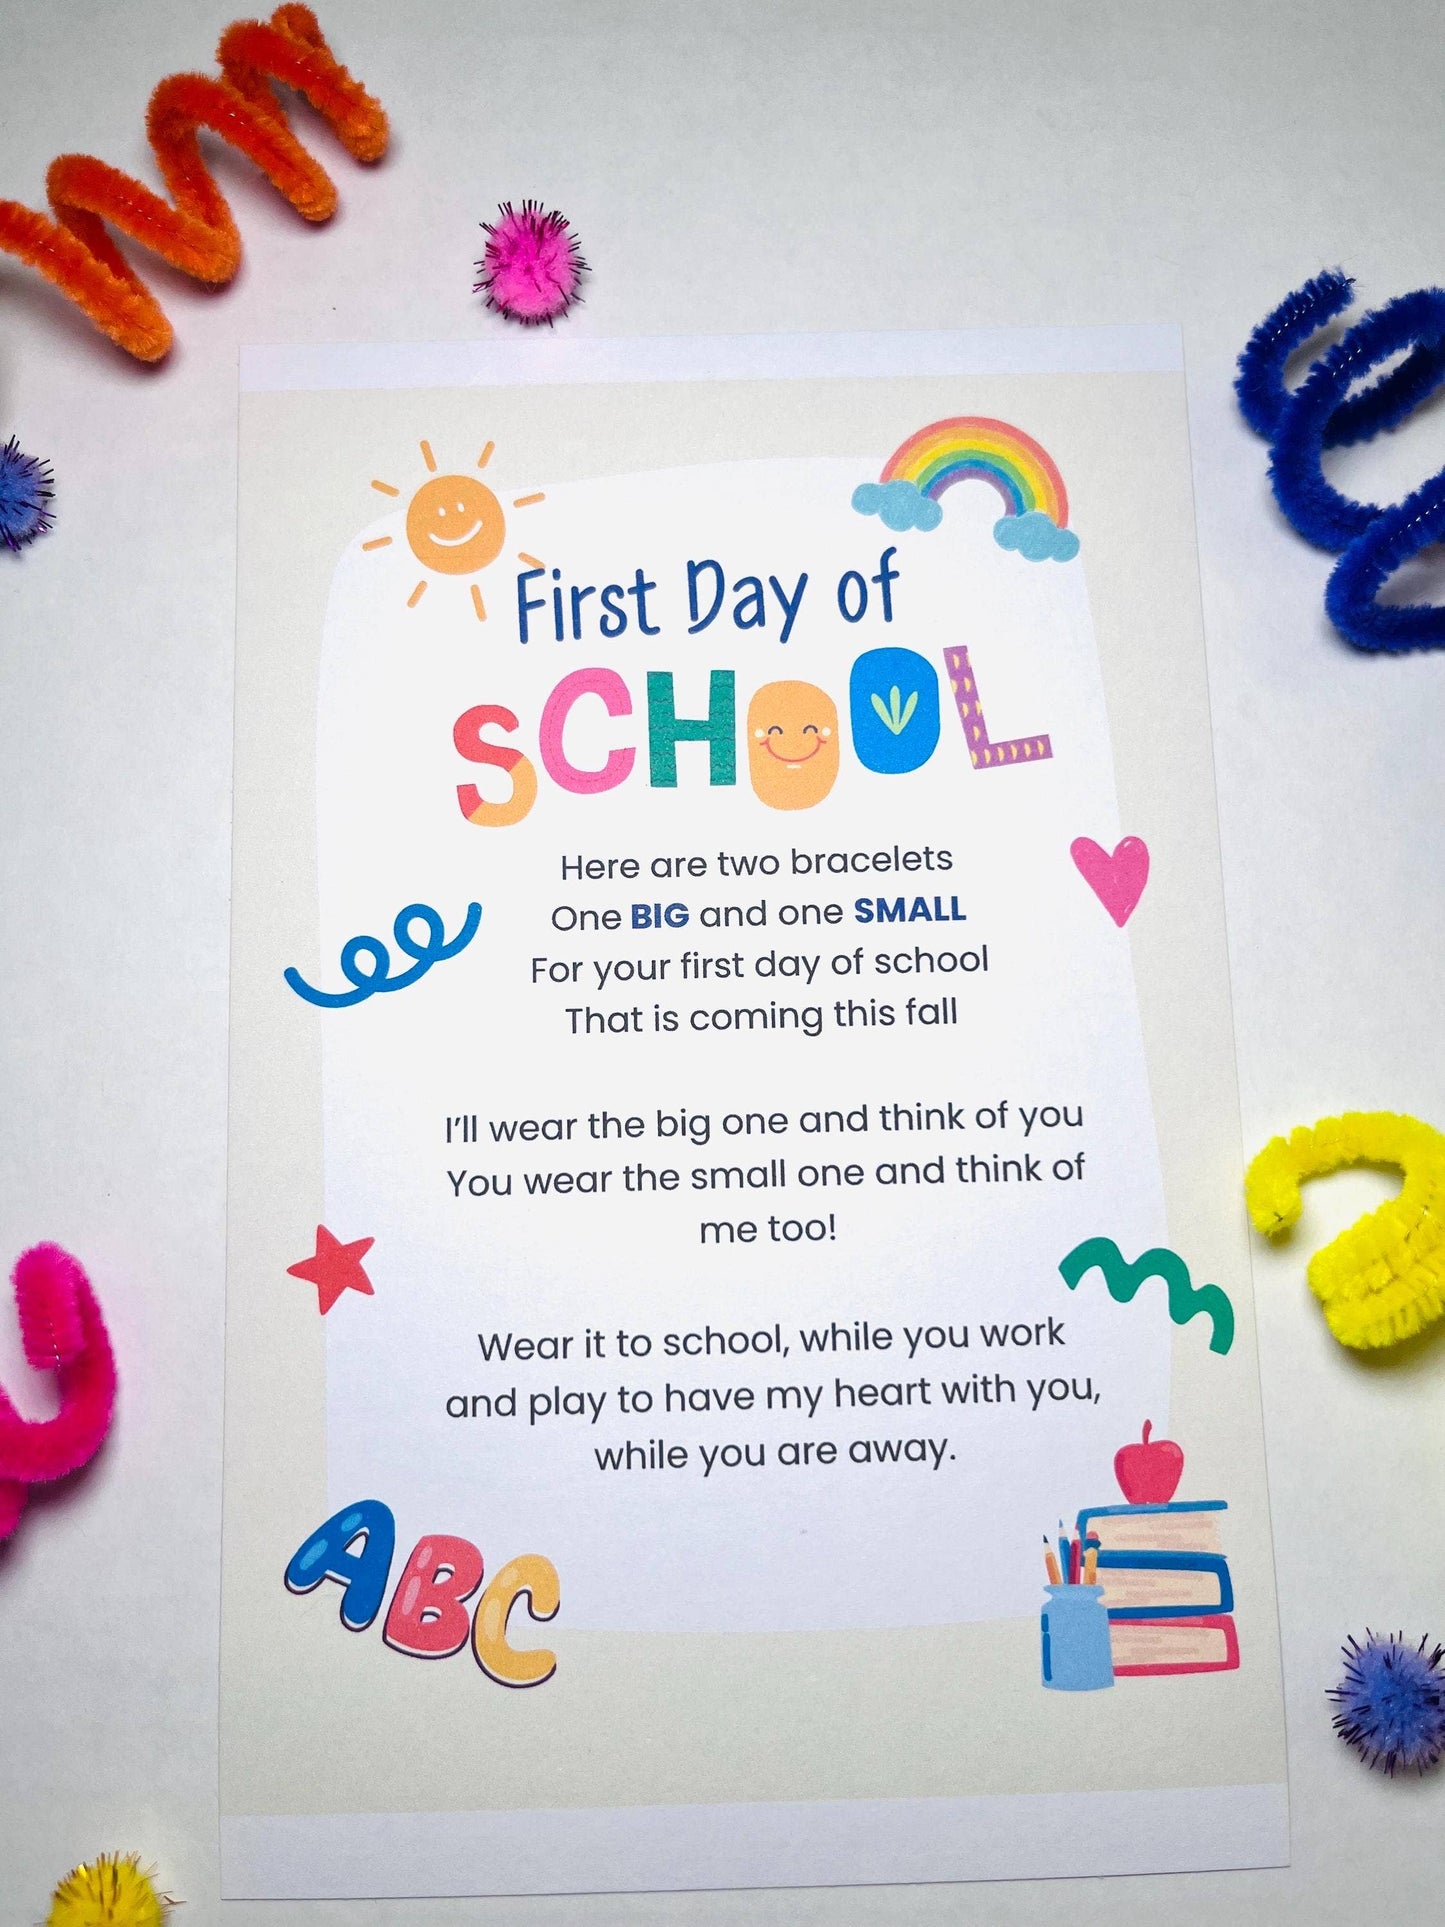 First Day of
SCHOOL
Here are two bracelets
One BIG and one SMALL
For your first day of school
That is coming this fall
I'll wear the big one and think of you
You wear the small one and think of
me too!
Wear it to school, while you work
and play to have my heart with you,
while you are away.
ABC